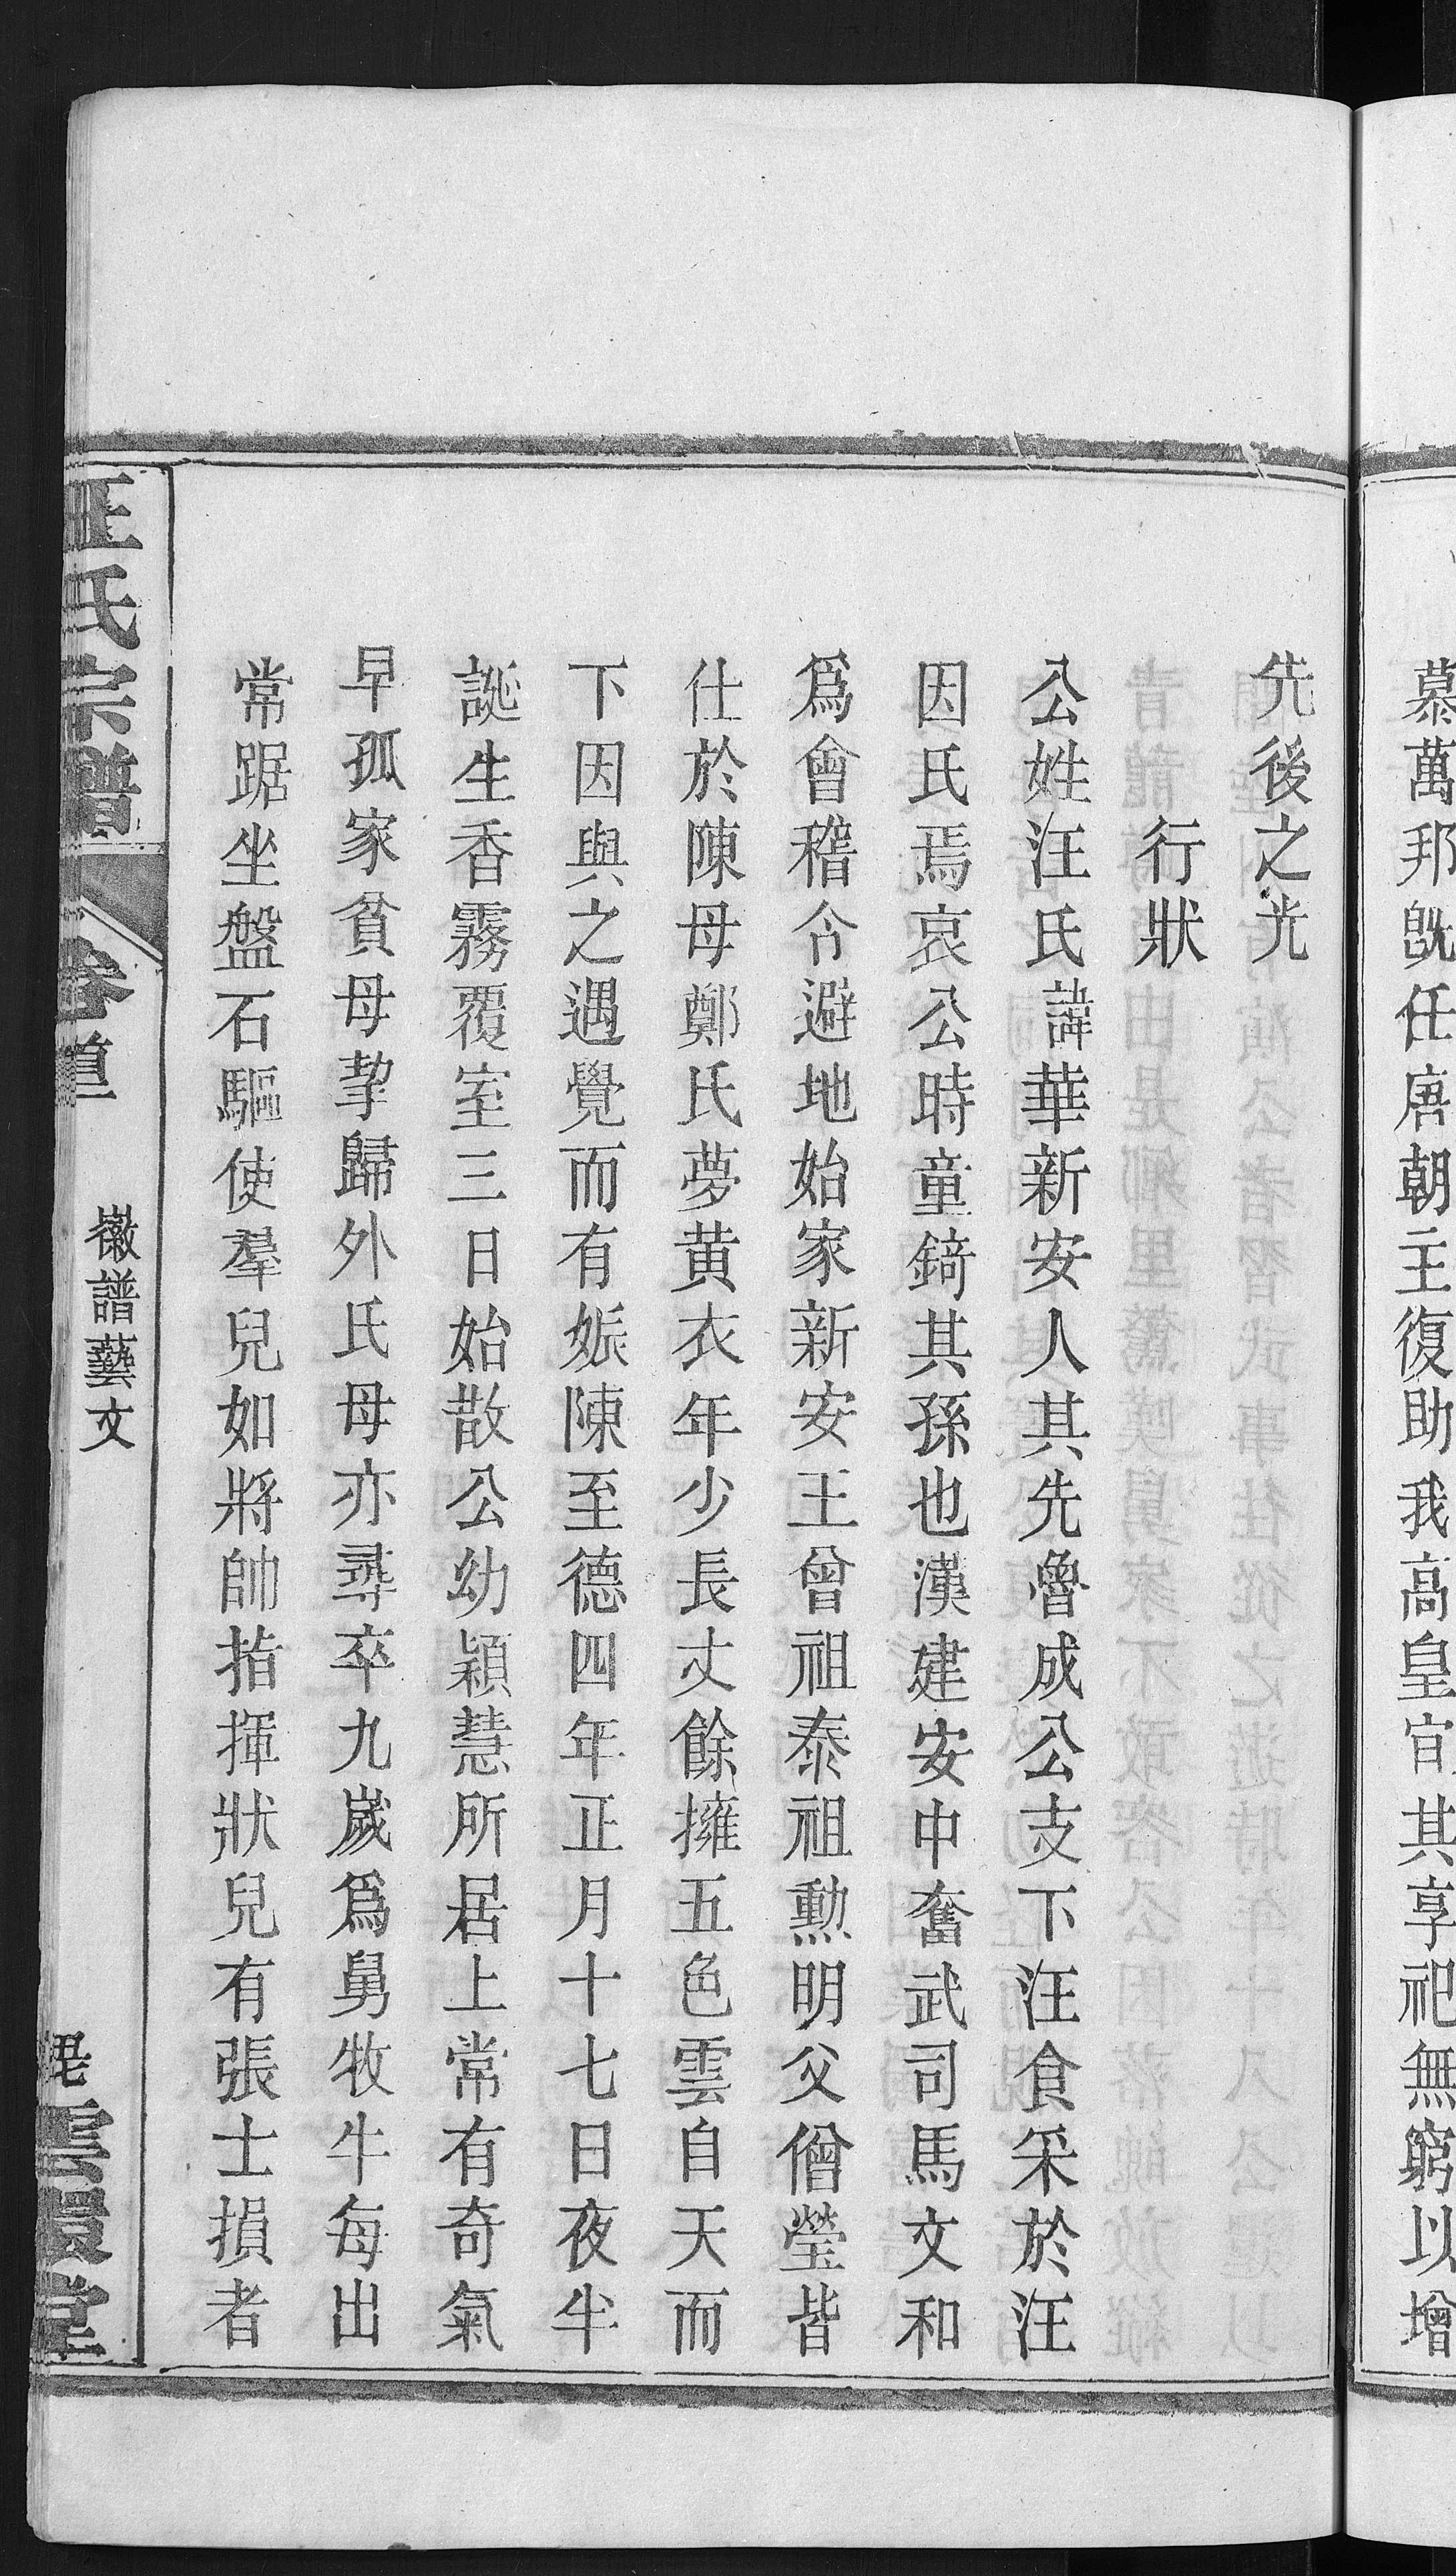 慕萬邦旣任唐朝主復助我高皇宜其享祀無窮以增
先後之光
行狀
公姓汪氏諱華新安人其先魯成公支下汪食采於汪
因氏焉哀公時童錡其孫也漢建安中奮武司馬文和
爲會稽令避地始家新安王曾祖泰祖勲明父僧瑩皆
仕於陳母鄭氏夢黄衣年少長丈餘擁五色雲自天而
下因與之遇覺而有娠陳至德四年正月十七日夜半
誕生香霧覆室三日始散公幼穎慧所居上常有奇氣
早孤家貧母挈歸外氏母亦尋卒九歲爲舅牧牛每出
常踞坐盤石驅使羣兒如將帥指揮狀兒有張士損者
汪氏宗譜
卷首
徽譜藝文
雲環堂